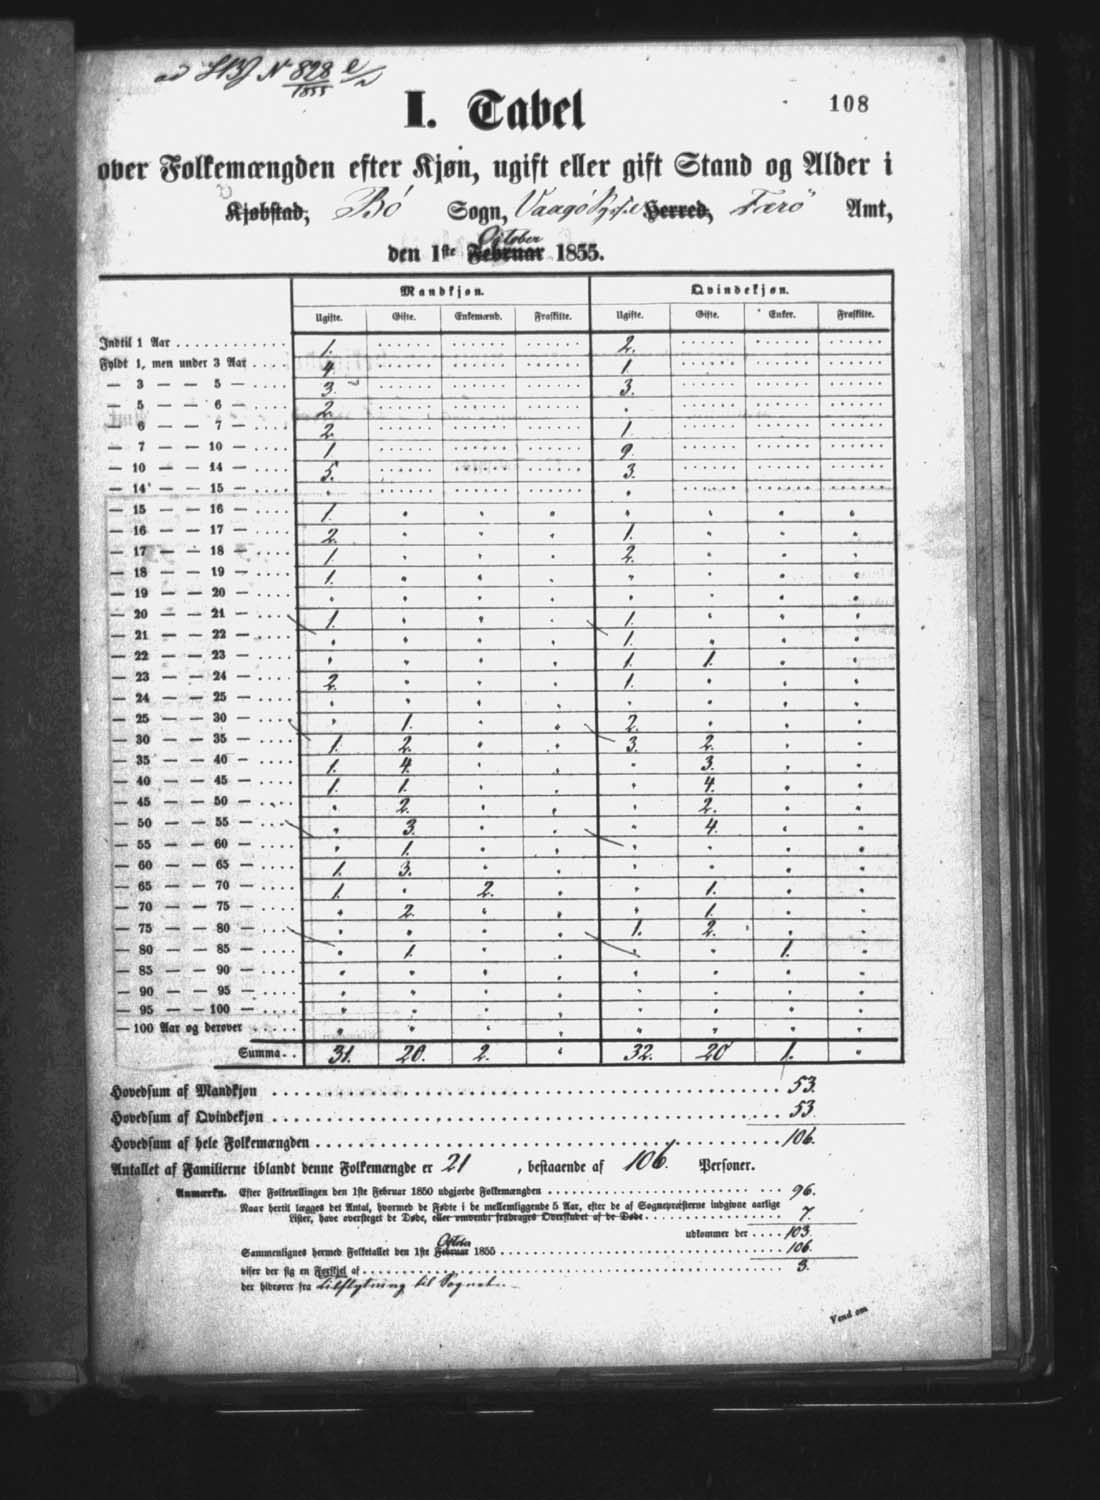 ad N 828/1855
I. Tabel
108
over Folkemængden efter Kjøn, ugift eller gift Stand og Alder i
Kjøbstad, Bö Sogn, Vaagö Syssel Herred, Færö Amt,
October
den 1ste Februar 1855.
Mandkjøn. Qvindekjøn.
Ugifte. Gifte. Enkemænd. Fraskilte. Ugifte. Gifte. Enker. Fraskilte.
Indtil 1 Aar 1. 2.
Fyldt 1, men under 3 Aar 4. 1.
— 3 — — 5 — 3. 3.
— 5 — — 6 — 2. .
— 6 — — 7 — 2. 1.
— 7 — — 10 — 1 9.
— 10 — — 14 — 5. 3.
— 14 — — 15 — . .
— 15 — — 16 — 1. . . . . . . .
— 16 — — 17 — 2. . . . 1. . . .
— 17 — — 18 — 1. . . . 2. . . .
— 18 — — 19 — 1. . . . . . . .
— 19 — — 20 — . . . . . . . .
— 20 — — 21 — 1. . . . 1. . . .
— 21 — — 22 — . . . . 1. . . .
— 22 — — 23 — . . . . 1. 1. . .
— 23 — — 24 — 2. . . . 1. . . .
— 24 — — 25 — . . . . . . . .
— 25 — — 30 — . 1. . . 2. . . .
— 30 — — 35 — 1. 2. . . 3. 2. . .
— 35 — — 40 — 1. 4. . . . 3. . .
— 40 — — 45 — 1. 1. . . . 4. . .
— 45 — — 50 — . 2. . . . 2. . .
— 50 — — 55 — . 3. . . . 4. . .
— 55 — — 60 — . 1. . . . . . .
— 60 — — 65 — 1. 3. . . . . . .
— 65 — — 70 — 1. . 2. . . 1. . .
— 70 — — 75 — . 2. . . . 1. . .
— 75 — — 80 — . . . . 1. 2. . .
— 80 — — 85 — . 1. . . . . 1. .
— 85 — — 90 — . . . . . . . .
— 90 — — 95 — . . . . . . . .
— 95 — — 100 — . . . . . . . .
— 100 Aar og derover . . . . . . . .
Summa . . 31. 20. 2. . 32. 20 1. .
Hovedsum af Mandkjøn 53.
Hovedsum af Qvindekjøn 53.
Hovedsum af hele Folkemængden 106.
Antallet af Familierne iblandt denne Folkemængde er 21, bestaaende af 106. Personer.
Anmærkn. Efter Folketællingen den 1ste Februar 1850 udgjorde Folkemængden 96.
Naar hertil lægges det Antal, hvormed de Fødte i de mellemliggende 5 Aar, efter de af Sognepræsterne indgivne aarlige
Lister, have oversteget de Døde, eller omvendt fradrages Overskudet af de Døde 7.
udkommer der 103.
October
Sammenlignes hermed Folketallet den 1ste Februar 1855 106.
viser der sig en Forskjel af 3.
der hidrører fra tilflytning til Sognet.
Vend om